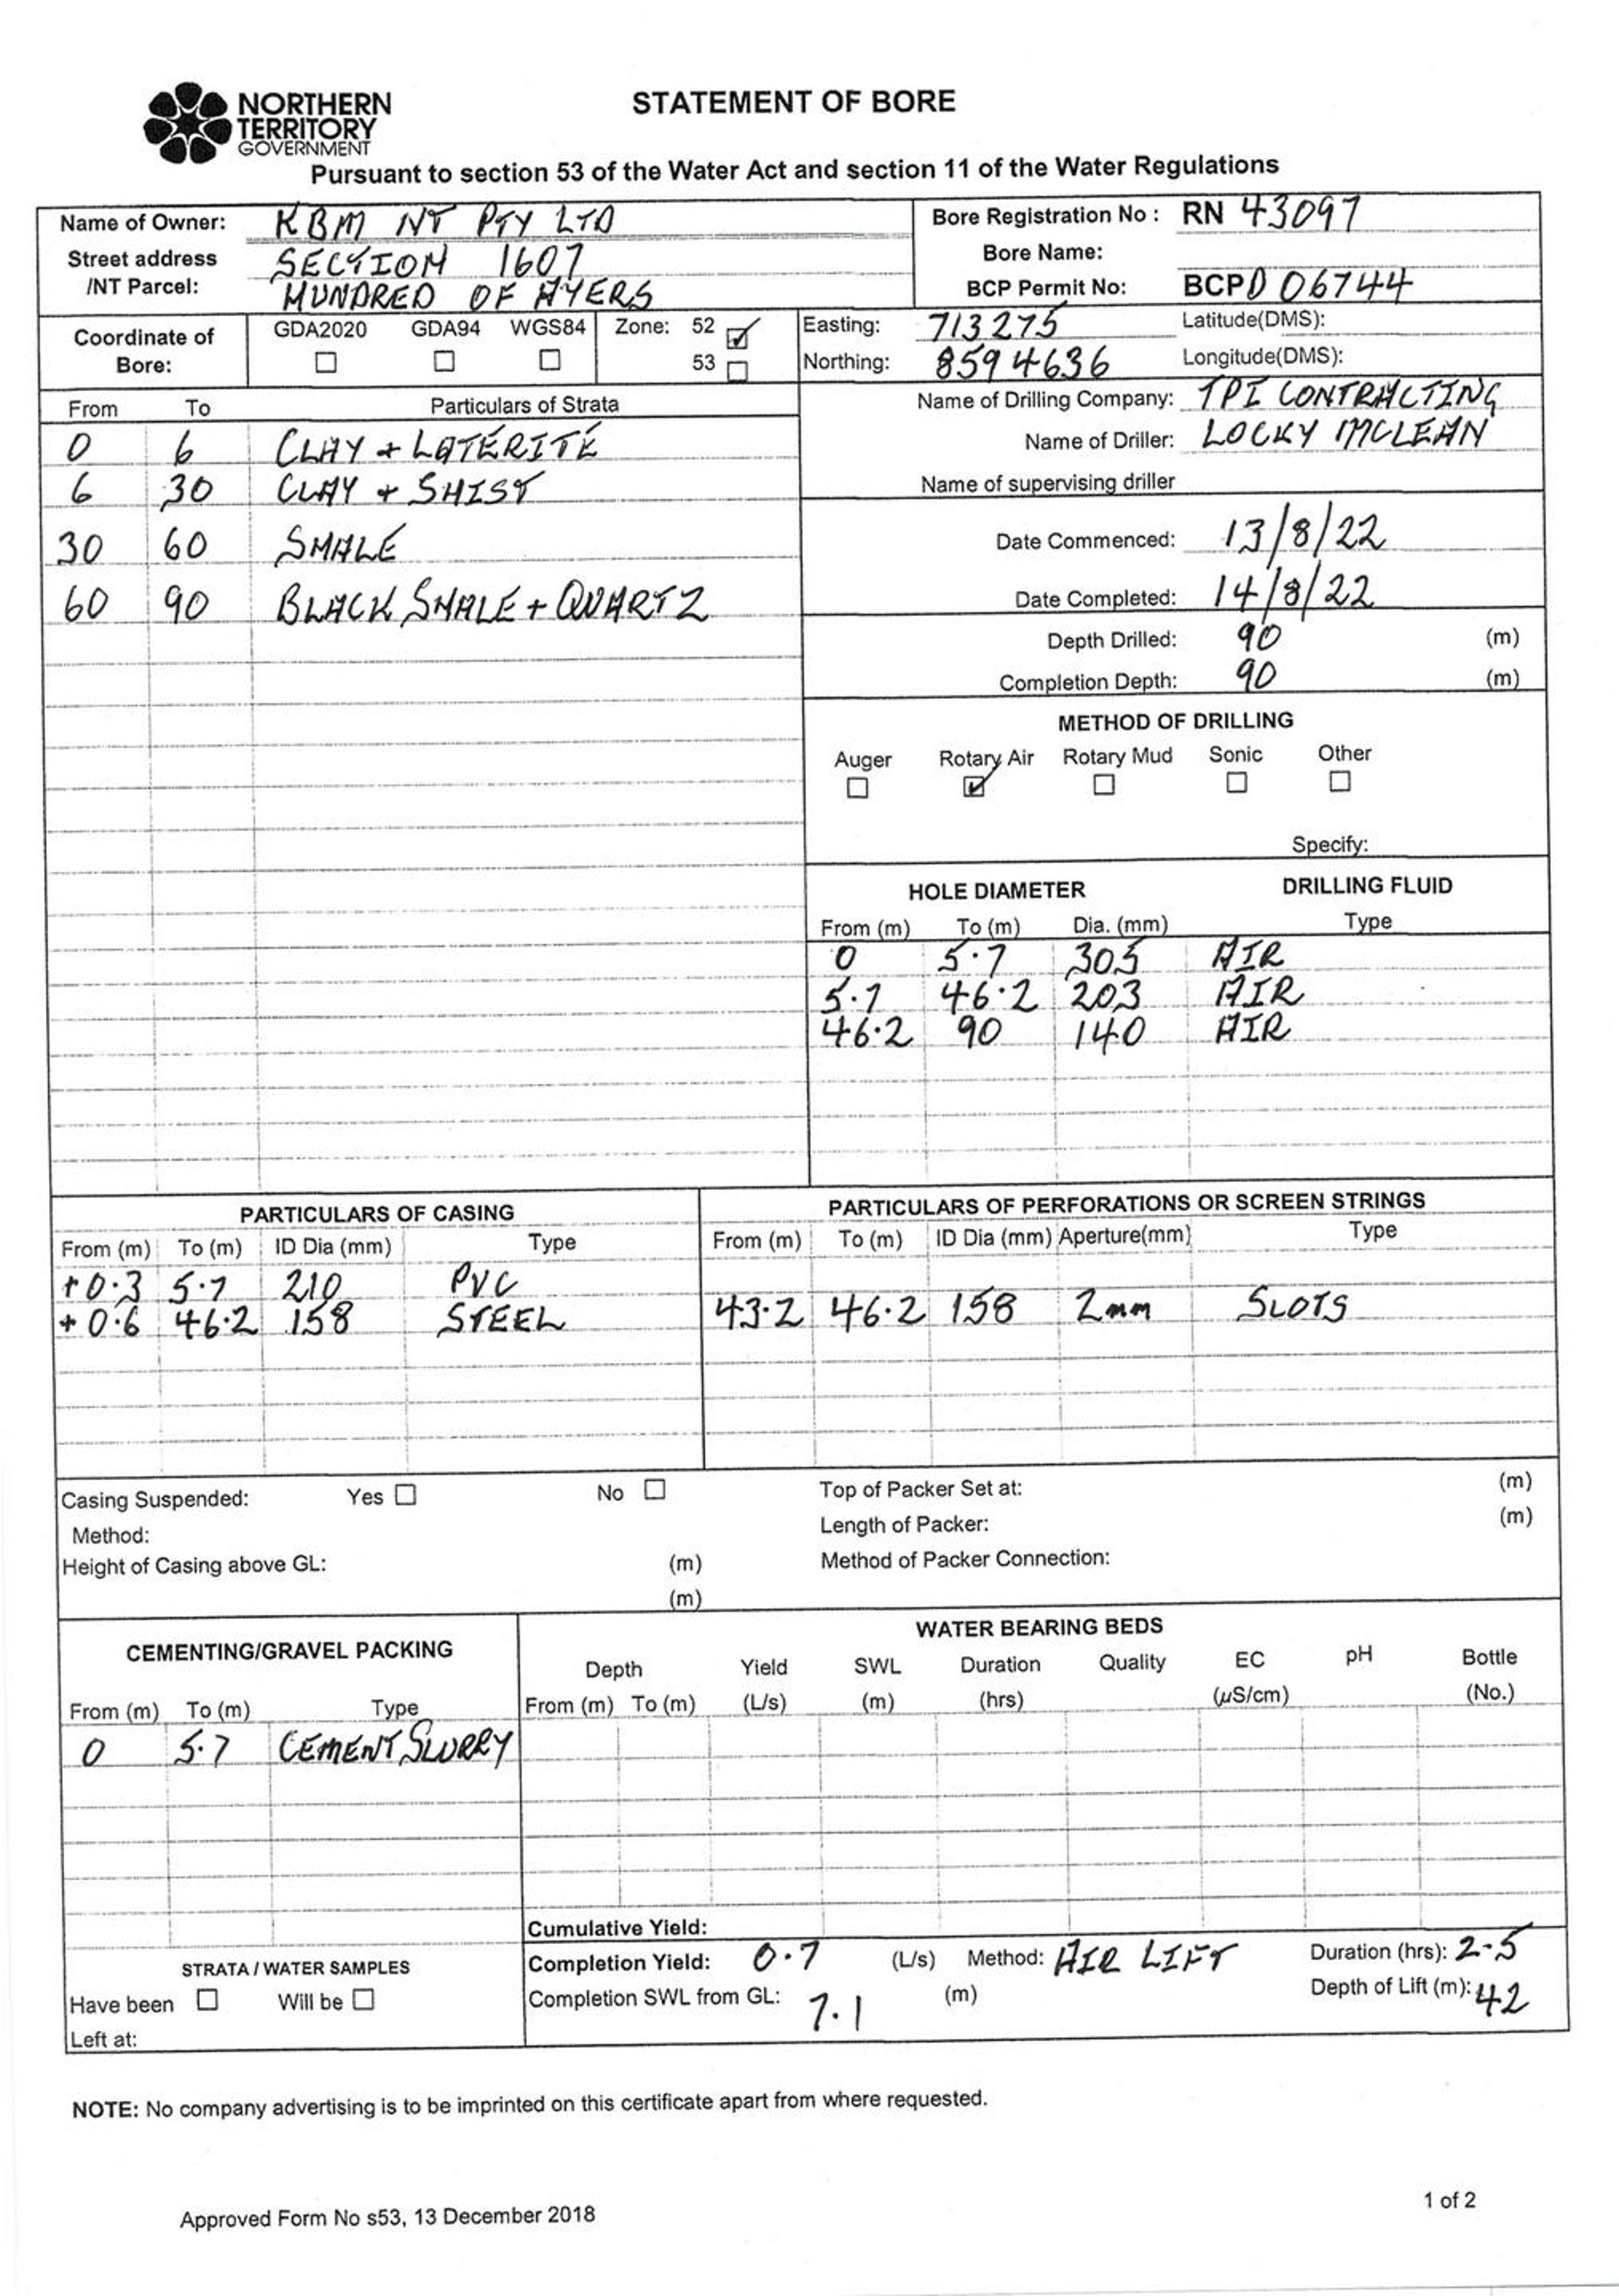 NORTHERN
TERRITORY
GOVERNMENT
STATEMENT OF BORE
Pursuant to section 53 of the Water Act and section 11 of the Water Regulations
Name of Owner: KBM NT PTY LTD
Street address SECTION 1607
/NT Parcel: HUNDRED OF AYERS
Bore Registration No : RN 43097
Bore Name:
BCP Permit No: BCPD 06744
Coordinate of Bore: GDA2020 ☐ GDA94 ☐ WGS84 ☐ Zone: 52 ☑ 53 ☐
Easting: 713275 Latitude(DMS):
Northing: 8594636 Longitude(DMS):
From To Particulars of Strata
0 6 CLAY + LATERITE
6 30 CLAY + SHIST
30 60 SHALE
60 90 BLACK SHALE + QUARTZ
Name of Drilling Company: TPI CONTRACTING
Name of Driller: LOCKY MCLEAN
Name of supervising driller
Date Commenced: 13/8/22
Date Completed: 14/8/22
Depth Drilled: 90 (m)
Completion Depth: 90 (m)
METHOD OF DRILLING
Auger ☐ Rotary Air ☑ Rotary Mud ☐ Sonic ☐ Other ☐
Specify:
HOLE DIAMETER DRILLING FLUID
From (m) To (m) Dia. (mm) Type
0 5.7 305 AIR
5.7 46.2 203 AIR
46.2 90 140 AIR
PARTICULARS OF CASING
From (m) To (m) ID Dia (mm) Type
+0.3 5.7 210 PVC
+0.6 46.2 158 STEEL
PARTICULARS OF PERFORATIONS OR SCREEN STRINGS
From (m) To (m) ID Dia (mm) Aperture(mm) Type
43.2 46.2 158 2mm SLOTS
Casing Suspended: Yes ☐ No ☐
Method:
Height of Casing above GL: (m)
(m)
Top of Packer Set at: (m)
Length of Packer: (m)
Method of Packer Connection:
CEMENTING/GRAVEL PACKING
From (m) To (m) Type
0 5.7 CEMENT SLURRY
WATER BEARING BEDS
Depth Yield SWL Duration Quality EC pH Bottle
From (m) To (m) (L/s) (m) (hrs) (µS/cm) (No.)
Cumulative Yield:
Completion Yield: 0.7 (L/s) Method: AIR LIFT Duration (hrs): 2.5
Completion SWL from GL: 7.1 (m) Depth of Lift (m): 42
STRATA / WATER SAMPLES
Have been ☐ Will be ☐
Left at:
NOTE: No company advertising is to be imprinted on this certificate apart from where requested.
Approved Form No s53, 13 December 2018
1 of 2